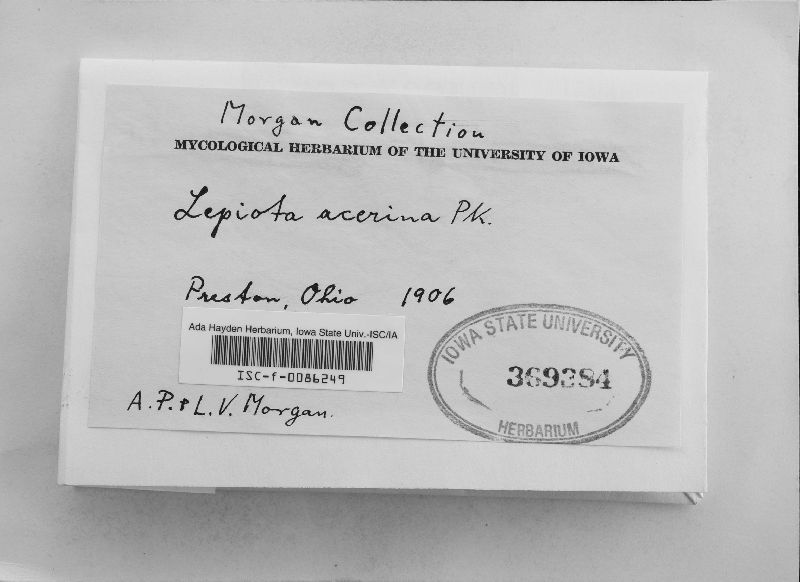 Morgan Collection
MYCOLOGICAL HERBARIUM OF THE UNIVERSITY OF IOWA
Lepiota acerina PK.
Preston, Ohio 1906
Ada Hayden Herbarium, Iowa State Univ.-ISC/IA
ISC-f-0086249
A.P. & L.V. Morgan.
IOWA STATE UNIVERSITY
369384
HERBARIUM